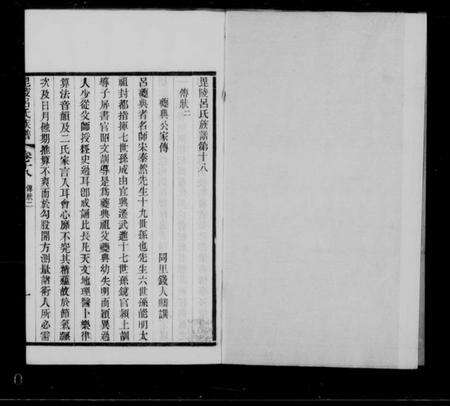 毘陵呂氏族譜第十八
傳狀二
夔典公家傳
同里錢人麟譔
呂夔典者名師宋泰然先生十九世孫也先生六世孫能明太
祖封都指揮七世孫成由官與遷武進十七世孫鏡官潁上訓
導子屏書官昭文訓導是爲夔典祖父夔典幼失明而穎異過
人少從父師授經史過耳卽成誦比長凡天文地理醫卜樂律
算法音韻及二氏家言入耳會心靡不究其精蘊故於節氣躔
次及日月候期推算不爽而於勾股開方測量諸術人所必需
毘陵呂氏族譜
卷十八
傳狀二
一